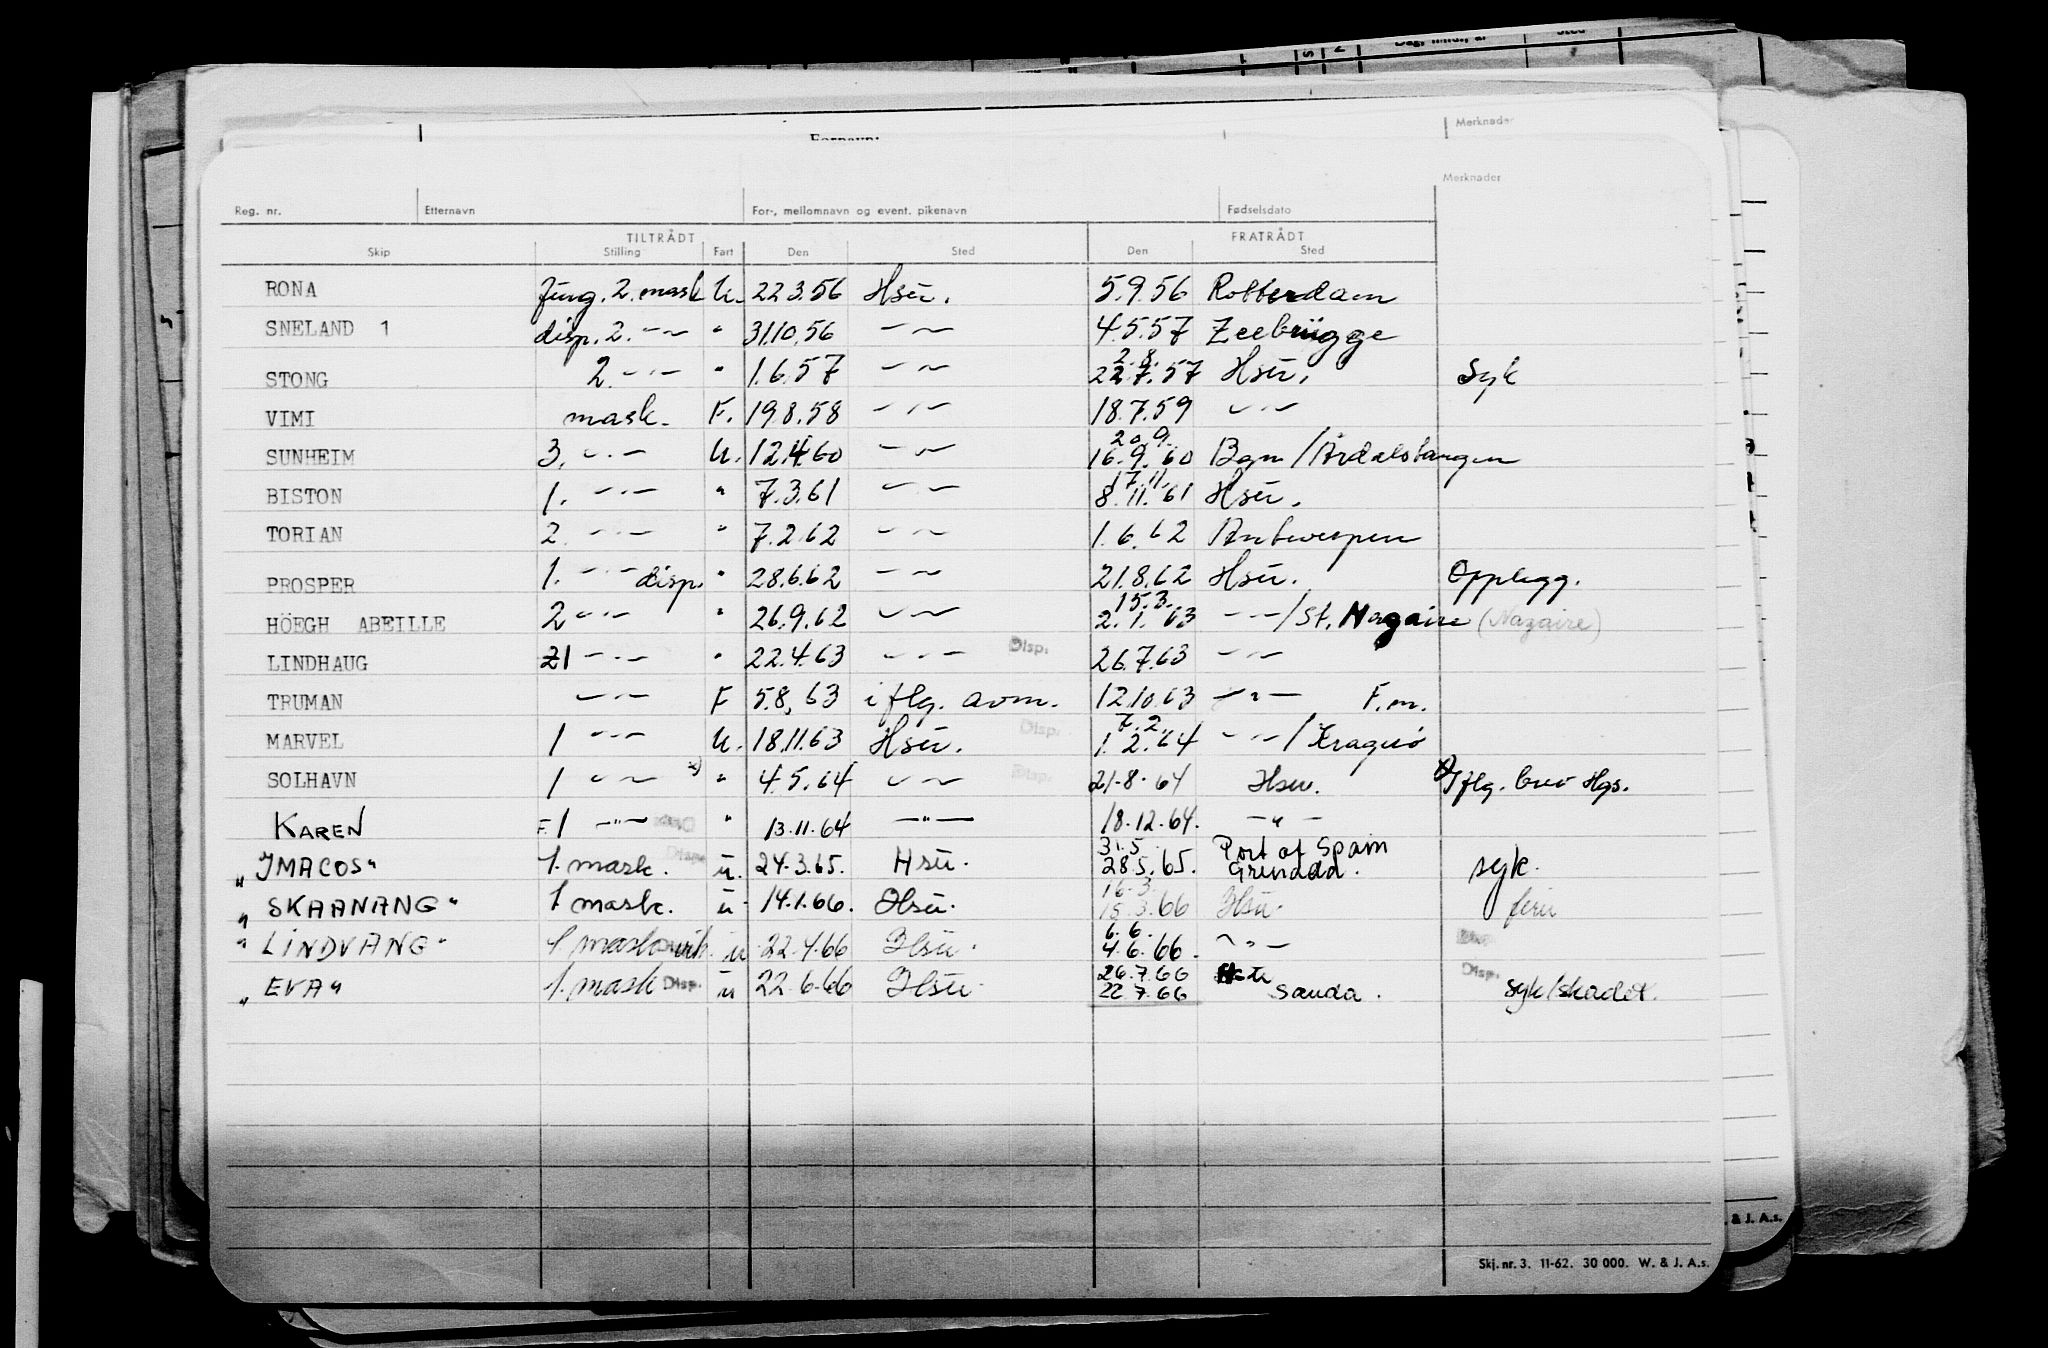 Fornavn:
Merknader
Merknader
Reg. nr. Etternavn For-, mellomnavn og event. pikenavn Fødselsdato
TILTRÅDT FRATRÅDT
Skip Stilling Fart Den Sted Den Sted
RONA fung. 2. mask U. 22.3.56 Hsu. 5.9.56 Rotterdam
SNELAND 1 disp. 2. -"- " 31.10.56 -"- 4.5.57 Zeebrügge
2.8.
STONG 2. -"- " 1.6.57 -"- 22.7.57 Hsu. Syk
VIMI mask. F. 19.8.58 -"- 18.7.59 -"-
20.9.
SUNHEIM 3. -"- U. 12.4.60 -"- 16.9.60 Bgn/Årdalstangen
17.11.
BISTON 1. -"- " 7.3.61 -"- 8.11.61 Hsu.
TORIAN 2. -"- " 7.2.62 -"- 1.6.62 Antwerpen
PROSPER 1. -"- disp. " 28.6.62 -"- 21.8.62 Hsu. Opplegg.
15.3.
HÖEGH ABEILLE 2 -"- " 26.9.62 -"- 2.1.63 -"-/St. Nazaire (Nazaire)
LINDHAUG 1 -"- " 22.4.63 -"- Disp. 26.7.63 -"-
TRUMAN -"- F 5.8.63 iflg. avm. 12.10.63 -"- F.m.
7.2.
MARVEL 1 -"- U. 18.11.63 Hsu. Disp. 1.2.64 -"-/Kragerø
SOLHAVN 1 -"- x) " 4.5.64 -"- Disp. 21-8-64 Hsu. x) Iflg. brev Hgs.
KAREN F. 1 -"- Disp. " 13.11.64 -"- 18.12.64. -"-
31.5. Port of Spain
"IMACOS" 1. mask. Disp. u. 24.3.65. Hsu. 28.5.65. Grenada. syk.
16-3.
"SKAANANG" 1 mask. u 14.1.66. Hsu. 15.3.66 Hsu. ferie
6.6.
"LINDVANG" 1 mask vik. u 22.4.66 Hsu. 4.6.66. -"-
26.7.66
"EVA" 1. mask Disp. u 22.6.66 Hsu. 22.7.66 Sauda. Disp. syk/skadet.
Skj. nr. 3. 11-62. 30 000. W. & J. A.s.
& J. A.s.